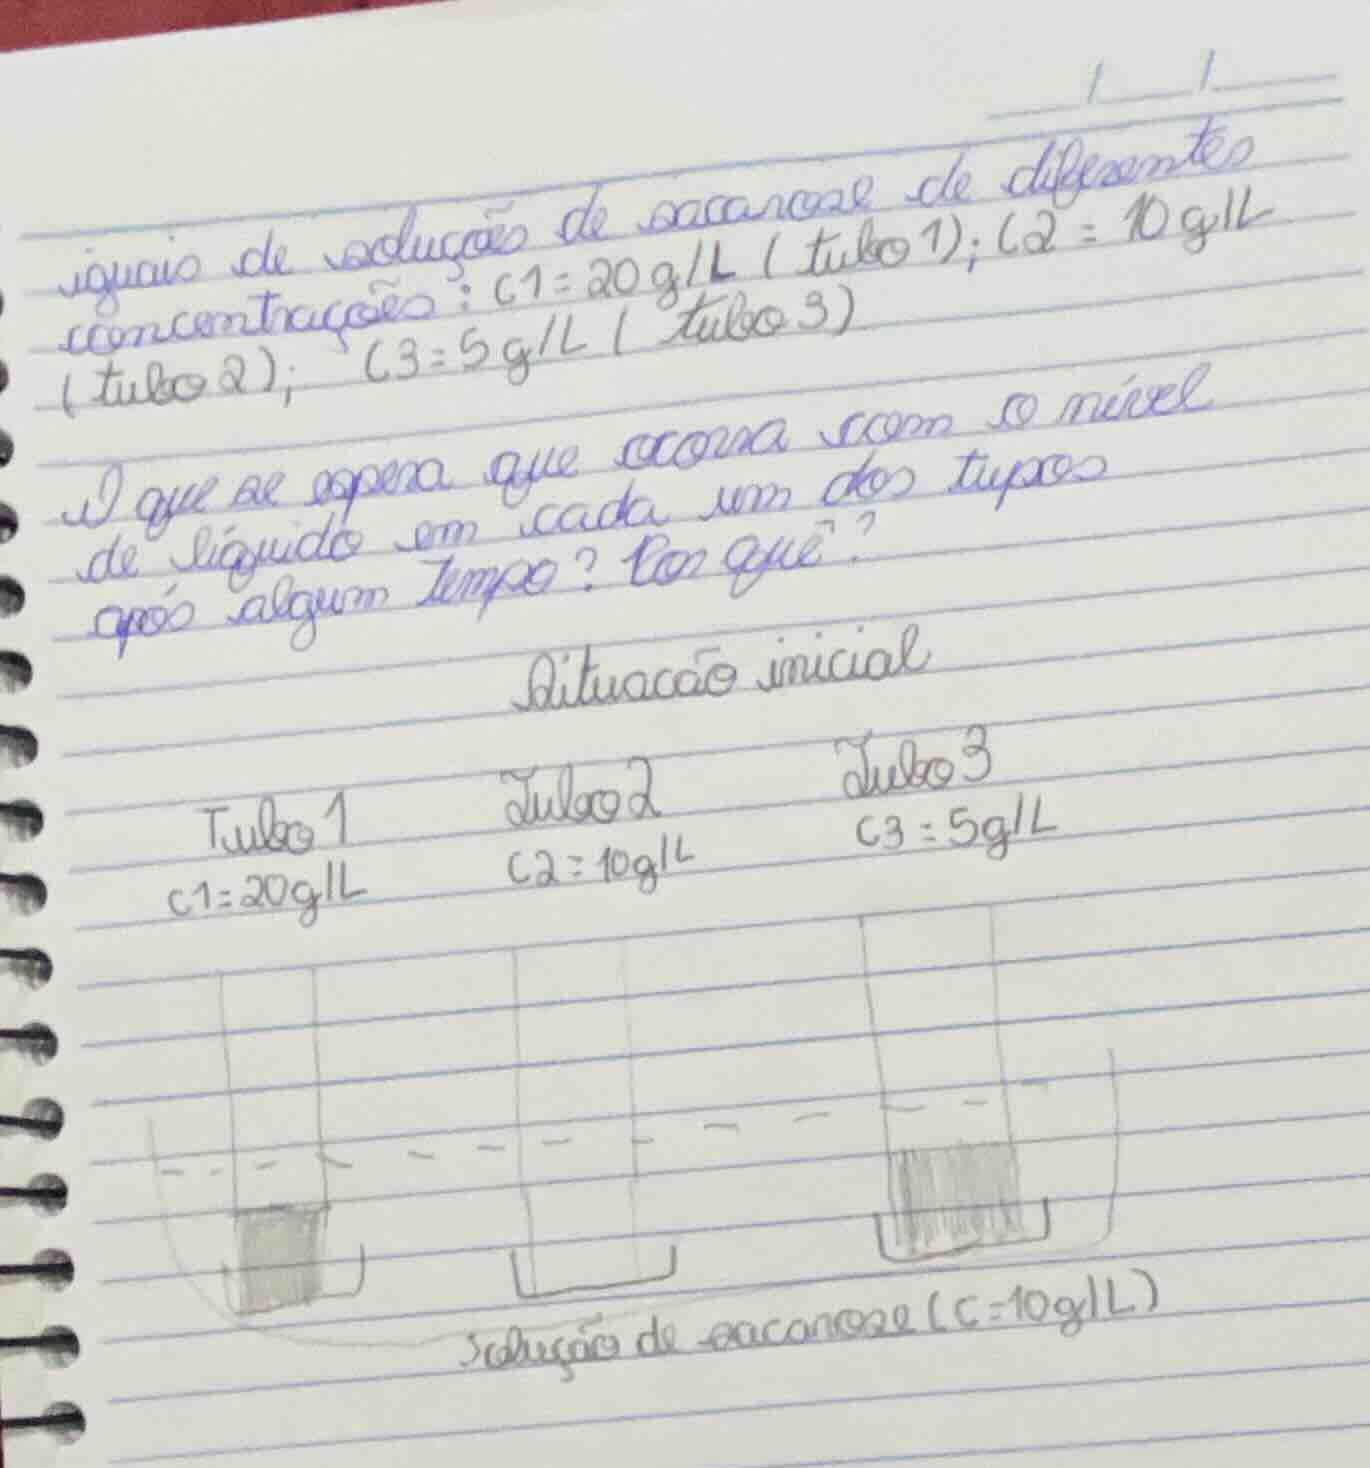 iguais de solução de sacarose de diferentes
concentrações: C1=20g/L (tubo 1); C2=10g/L
(tubo 2); C3=5g/L (tubo 3)
O que se espera que ocorra com o nível
de líquido em cada um dos tupos
após algum tempo? Por quê?
Situacão inicial
Tubo 1 Tubo 2 Tubo 3
C1=20g/L C2=10g/L C3=5g/L
solução de sacarose (C=10g/L)